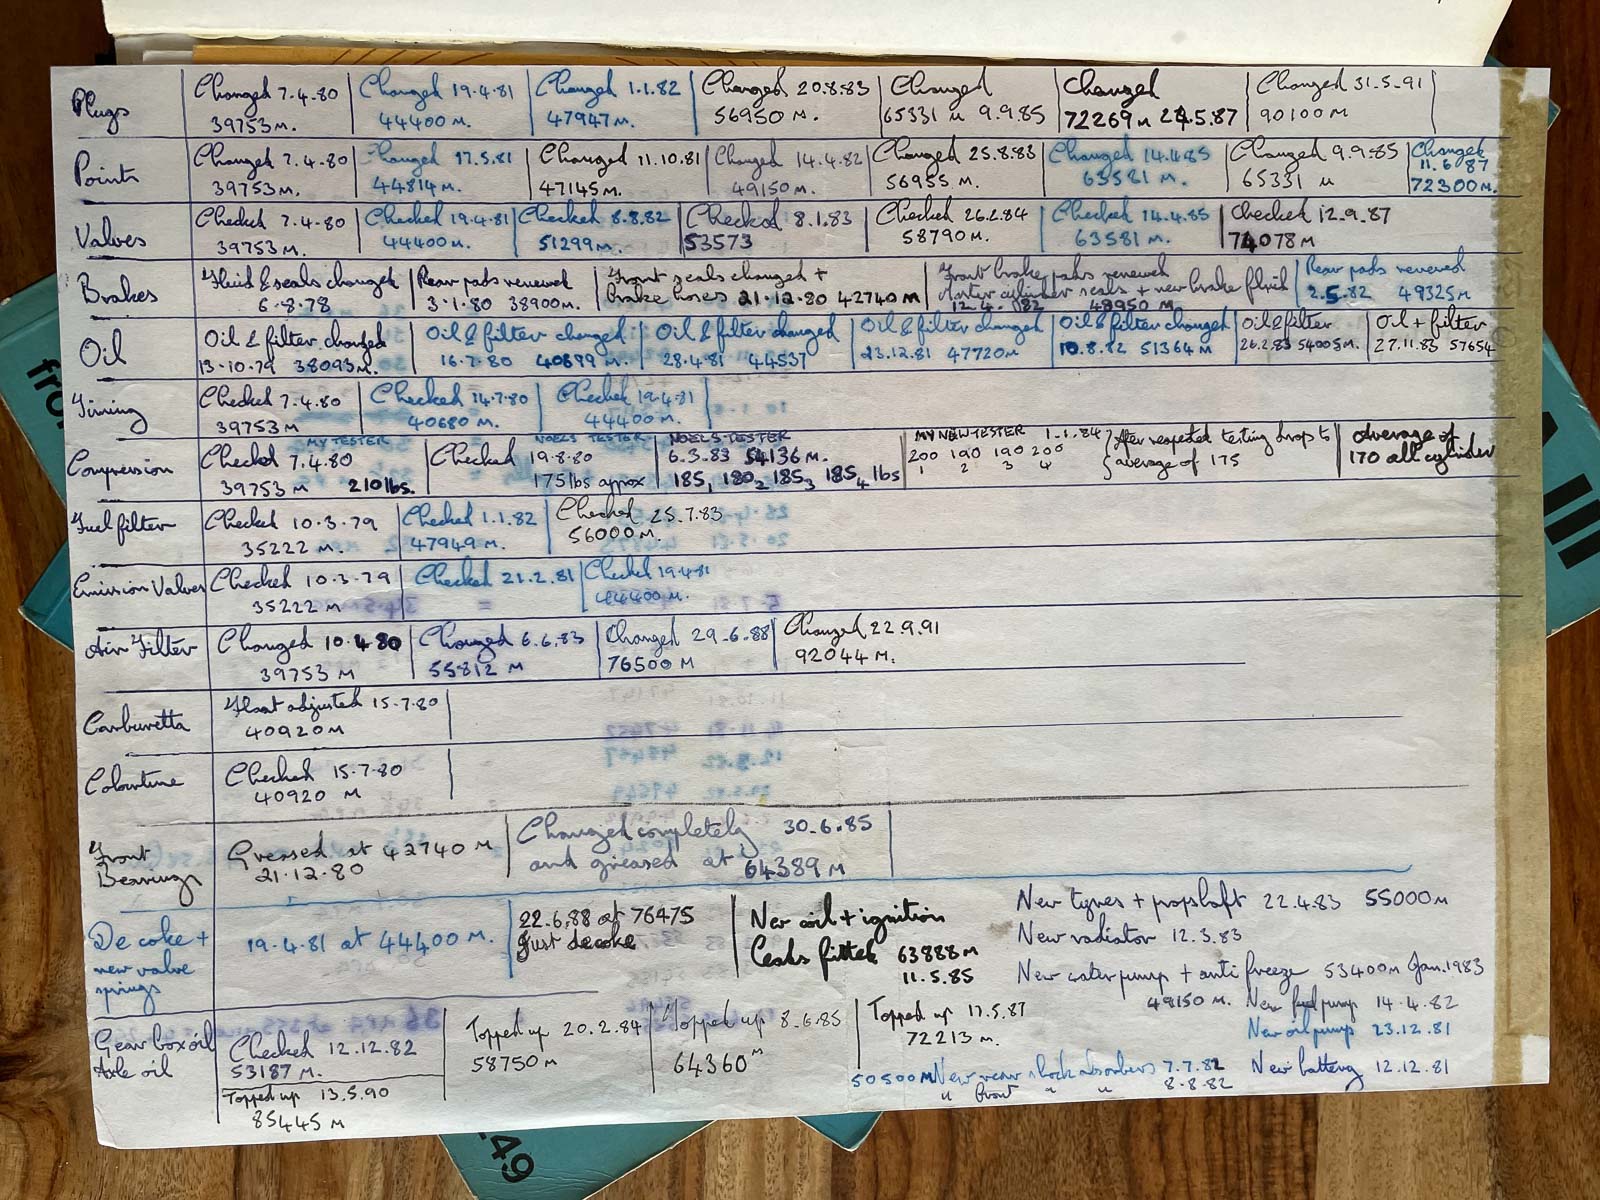 Plugs
Changed 7.4.80
39753 M.
Changed 19.4.81
44400 M.
Changed 1.1.82
47947 M.
Changed 20.8.83
56950 M.
Changed
65331 M 9.9.85
Changed
72269 M 24.5.87
Changed 31.5.91
90100 M
Points
Changed 7.4.80
39753 M.
Changed 17.5.81
44814 M.
Changed 11.10.81
47145 M.
Changed 14.4.82
49150 M.
Changed 25.8.83
56955 M.
Changed 14.4.85
63581 M.
Changed 9.9.85
65331 M
Changed
11.6.87
72300 M.
Valves
Checked 7.4.80
39753 M.
Checked 19.4.81
44400 M.
Checked 8.8.82
51299 M.
Checked 8.1.83
53573
Checked 26.2.84
58790 M.
Checked 14.4.85
63581 M.
Checked 12.9.87
74078 M
Brakes
Fluid & seals changed
6.8.78
Rear pads renewed
3.1.80 38900 M.
Front seals changed +
brake hoses 21.12.80 42740 M
Front brake pads renewed
Master cylinder seals + new brake fluid
12.4.82 48950 M
Rear pads renewed
2.5.82 49325 M
Oil
Oil & filter changed
13.10.79 38093 M.
Oil & filter changed
16.7.80 40699 M.
Oil & filter changed
28.4.81 44537
Oil & filter changed
23.12.81 47720 M
Oil & filter changed
10.8.82 51364 M
Oil & filter
26.2.83 54005 M.
Oil + filter
27.11.83 57654
Timing
Checked 7.4.80
39753 M
Checked 14.7.80
40680 M.
Checked 19.4.81
44400 M.
Compression
MY TESTER
Checked 7.4.80
39753 M 210 lbs.
NOELS TESTER
Checked 19.8.80
175 lbs approx
NOELS TESTER
6.3.83 54136 M.
185, 1 180, 2 185, 3 185 4 lbs
MY NEW TESTER 1.1.84
200 190 190 200
1 2 3 4
After repeated testing drop to
average of 175
Average of
170 all cylinder
Fuel filter
Checked 10.3.79
35222 M.
Checked 1.1.82
47949 M.
Checked 25.7.83
56000 M.
Emission Valves
Checked 10.3.79
35222 M
Checked 21.2.81
Checked 19.4.81
44400 M.
Air Filter
Changed 10.4.80
39753 M
Changed 6.6.83
55812 M
Changed 29.6.88
76500 M
Changed 22.9.91
92044 M.
Carburetta
Float adjusted 15.7.80
40920 M
Colourtune
Checked 15.7.80
40920 M
Front
Bearings
Greased at 42740 M
21.12.80
Changed completely 30.6.85
and greased at 64389 M
De coke +
new valve
springs
19.4.81 at 44400 M.
22.6.88 at 76475
Just decoke
New coil + ignition
leads fitted 63888 M
11.5.85
New tyres + propshaft 22.4.83 55000 M
New radiator 12.3.83
New water pump + anti freeze 53400 M Jan. 1983
49150 M. New fuel pump 14.4.82
New oil pump 23.12.81
New battery 12.12.81
Gear box oil
Axle oil
Checked 12.12.82
53187 M.
Topped up 13.5.90
85445 M
Topped up 20.2.84
58750 M
Topped up 8.6.85
64360 M
Topped up 17.5.87
72213 M.
50500 M New rear shock absorbers 7.7.82
" front " " 8.8.82
fro
III
49